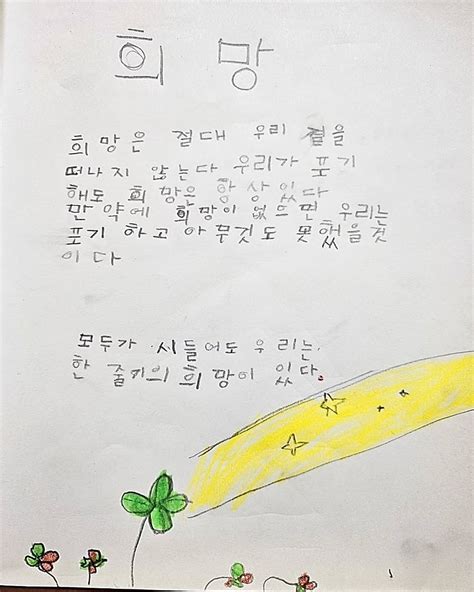 희망
희망은 절대 우리 곁을
떠나지 않는다 우리가 포기
해도 희망은 항상있다
만약에 희망이 없으면 우리는
포기 하고 아무것도 못했을것
이다
모두가 시들어도 우리는
한 줄기의 희망이 있다.